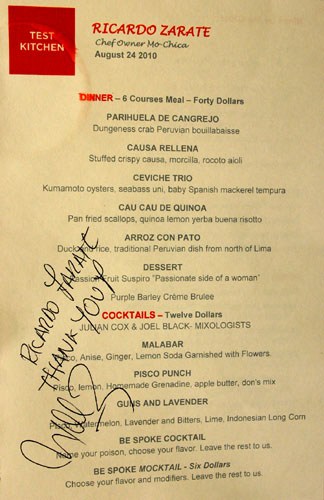 TEST
KITCHEN
RICARDO ZARATE
Chef Owner Mo-Chica
August 24 2010
DINNER – 6 Courses Meal – Forty Dollars
PARIHUELA DE CANGREJO
Dungeness crab Peruvian bouillabaisse
CAUSA RELLENA
Stuffed crispy causa, morcilla, rocoto aioli
CEVICHE TRIO
Kumamoto oysters, seabass uni, baby Spanish mackerel tempura
CAU CAU DE QUINOA
Pan fried scallops, quinoa lemon yerba buena risotto
ARROZ CON PATO
Duck and rice, traditional Peruvian dish from north of Lima
DESSERT
Passion Fruit Suspiro "Passionate side of a woman"
Purple Barley Crème Brulee
COCKTAILS – Twelve Dollars
JULIAN COX & JOEL BLACK- MIXOLOGISTS
MALABAR
Pisco, Anise, Ginger, Lemon Soda Garnished with Flowers.
PISCO PUNCH
Pisco, lemon, Homemade Grenadine, apple butter, don's mix
GUNS AND LAVENDER
Pisco, Watermelon, Lavender and Bitters, Lime, Indonesian Long Corn
BE SPOKE COCKTAIL
Name your poison, choose your flavor. Leave the rest to us.
BE SPOKE MOCKTAIL - Six Dollars
Choose your flavor and modifiers. Leave the rest to us.
RICARDO ZARATE
THANK YOU